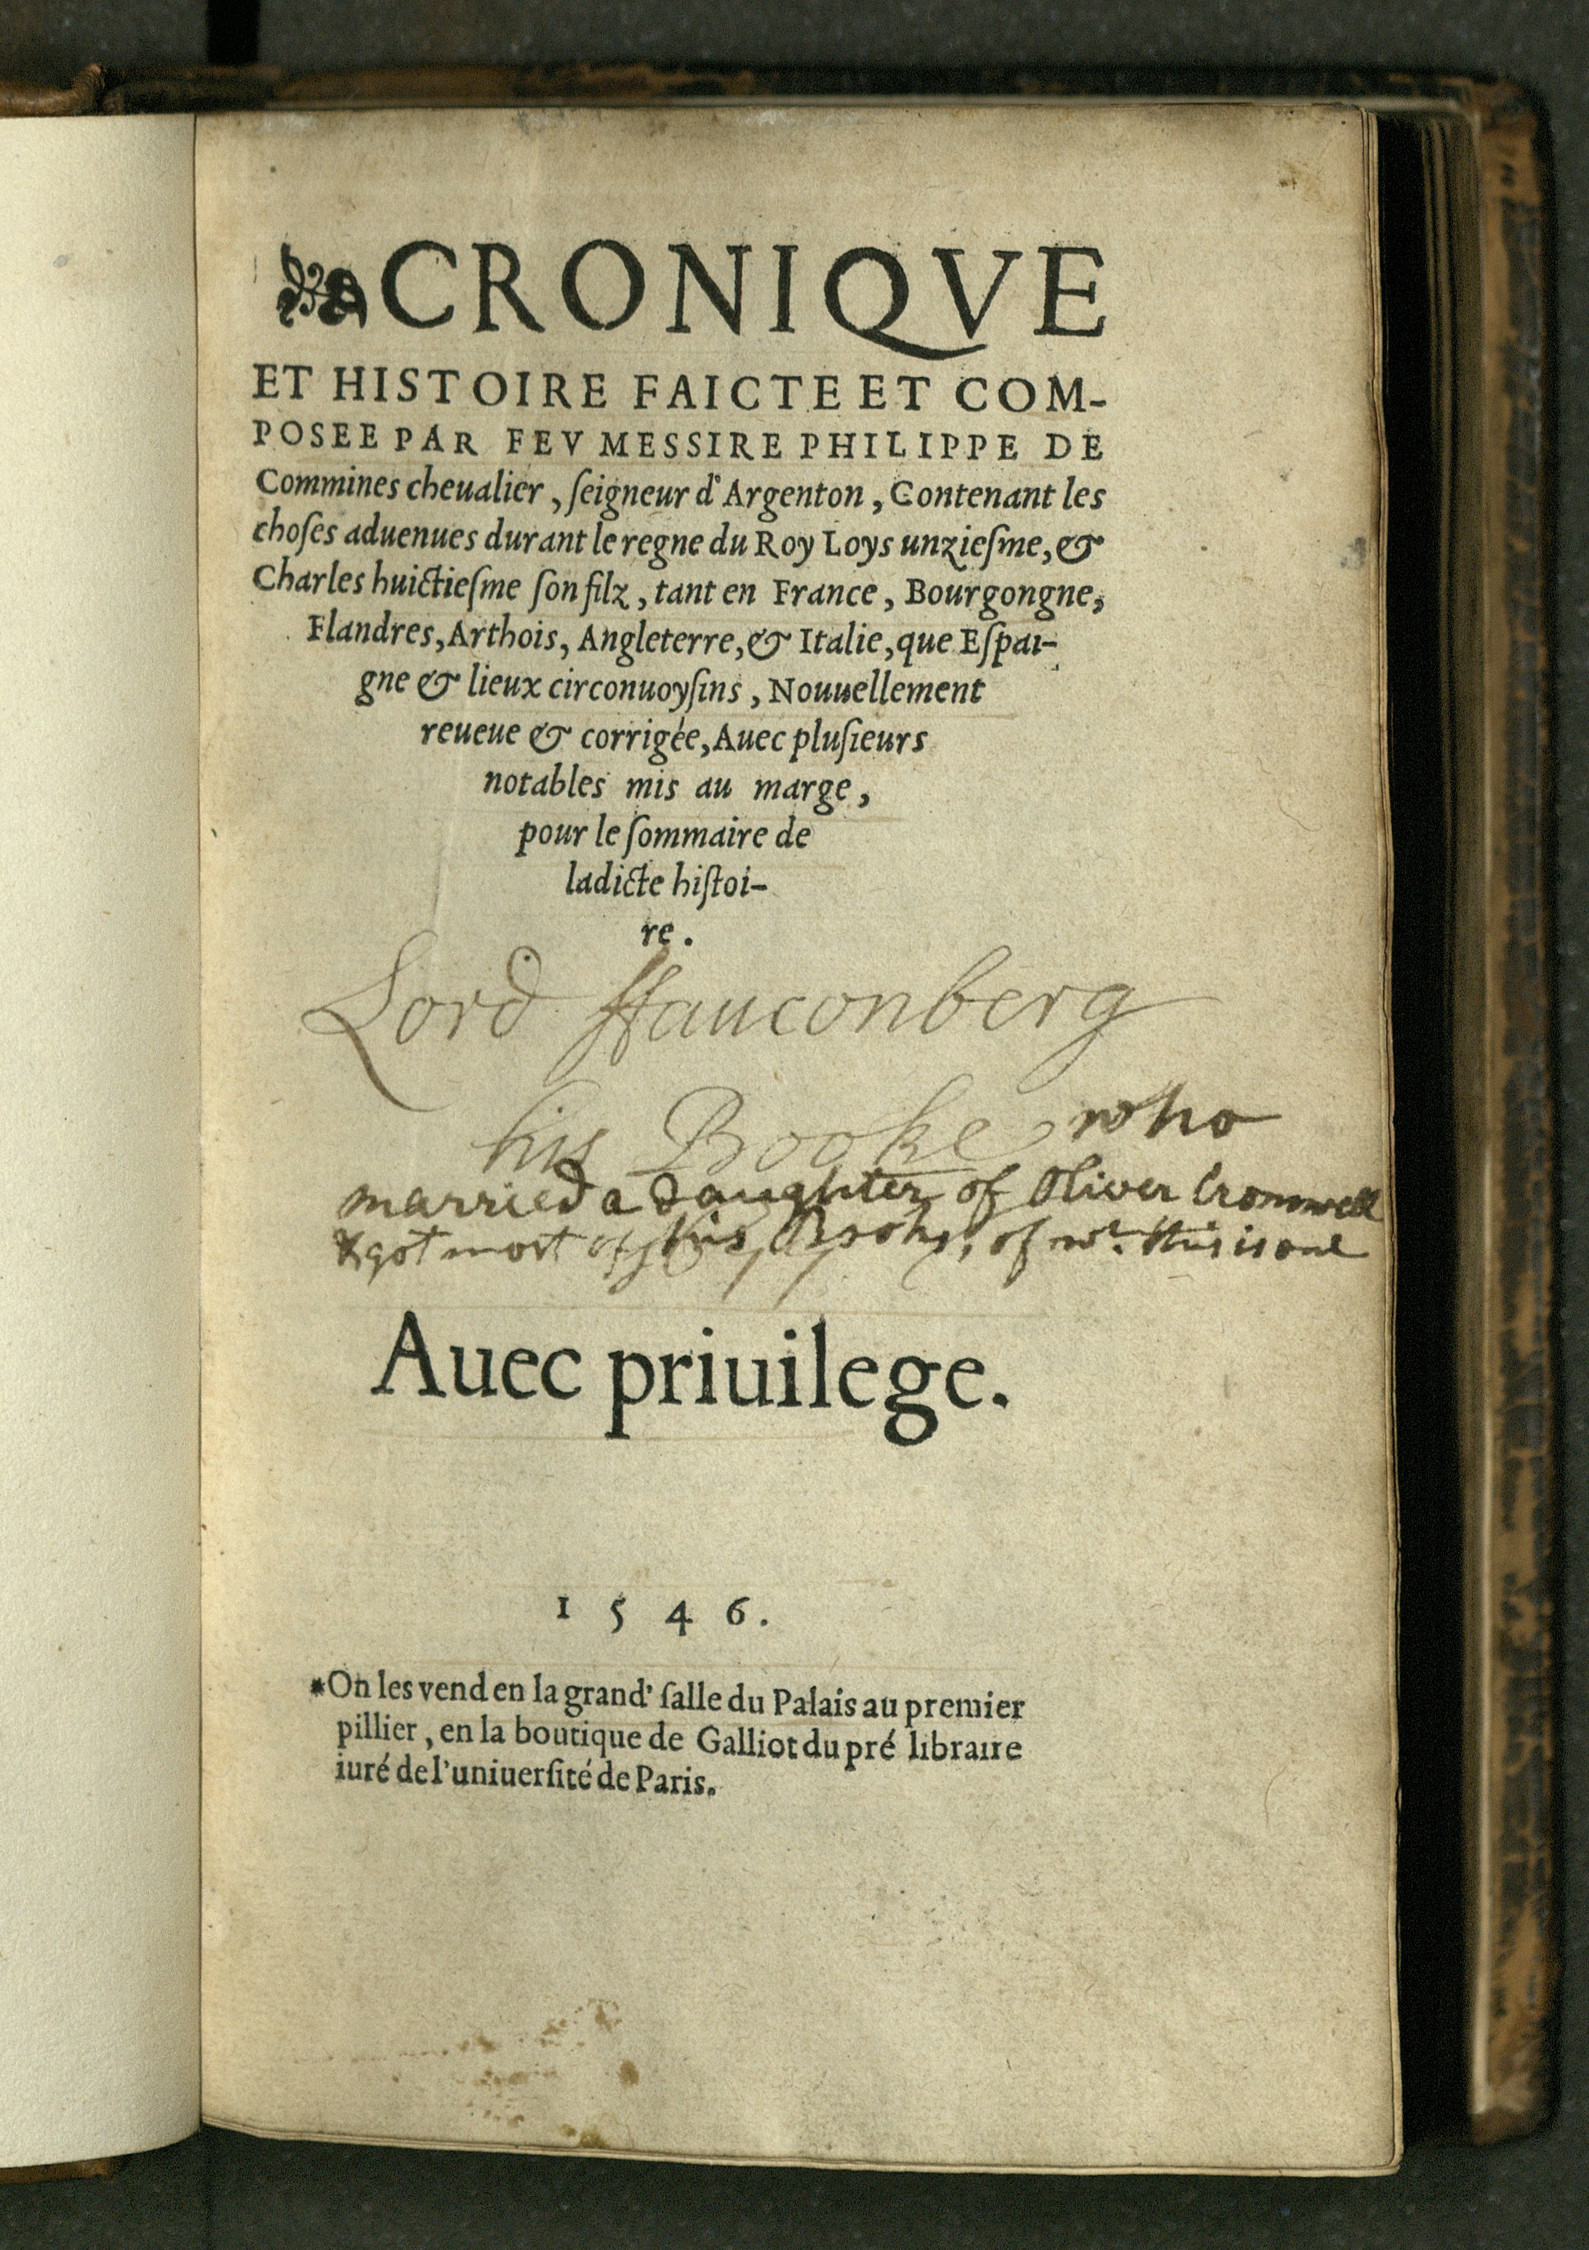 CRONIQVE
ET HISTOIRE FAICTE ET COM-
POSEE PAR FEV MESSIRE PHILIPPE DE
Commines cheualier, ſeigneur d'Argenton, Contenant les
choſes aduenues durant le regne du Roy Loys unzieſme, &
Charles huictieſme ſon filz, tant en France, Bourgongne,
Flandres, Arthois, Angleterre, & Italie, que Eſpai-
gne & lieux circonuoyſins, Nouuellement
reueue & corrigée, Auec pluſieurs
notables mis au marge,
pour le ſommaire de
ladicte hiſtoi-
re.
Lord ffauconberg
his Booke who
married a daughter of Oliver Cromwell
& got most of his Books, of wᶜ. this is one
Auec priuilege.
1546.
*On les vend en la grand' ſalle du Palais au premier
pillier, en la boutique de Galliot du pré libraire
iuré de l'uniuerſité de Paris.